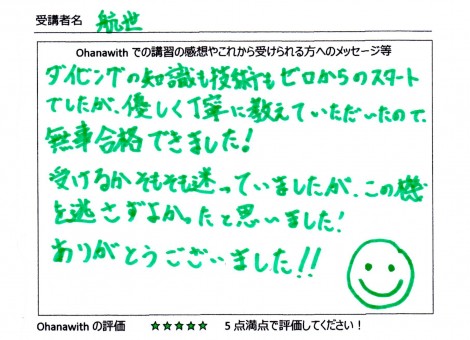 受講者名 航世
Ohanawith での講習の感想やこれから受けられる方へのメッセージ等
ダイビングの知識も技術もゼロからのスタート
でしたが、優しく丁寧に教えていただいたので、
無事合格できました!
受けるかそもそも迷っていましたが、この機
を逃さずよかったと思いました!
ありがとうございました!!
Ohanawith の評価 ★★★★★ 5 点満点で評価してください!